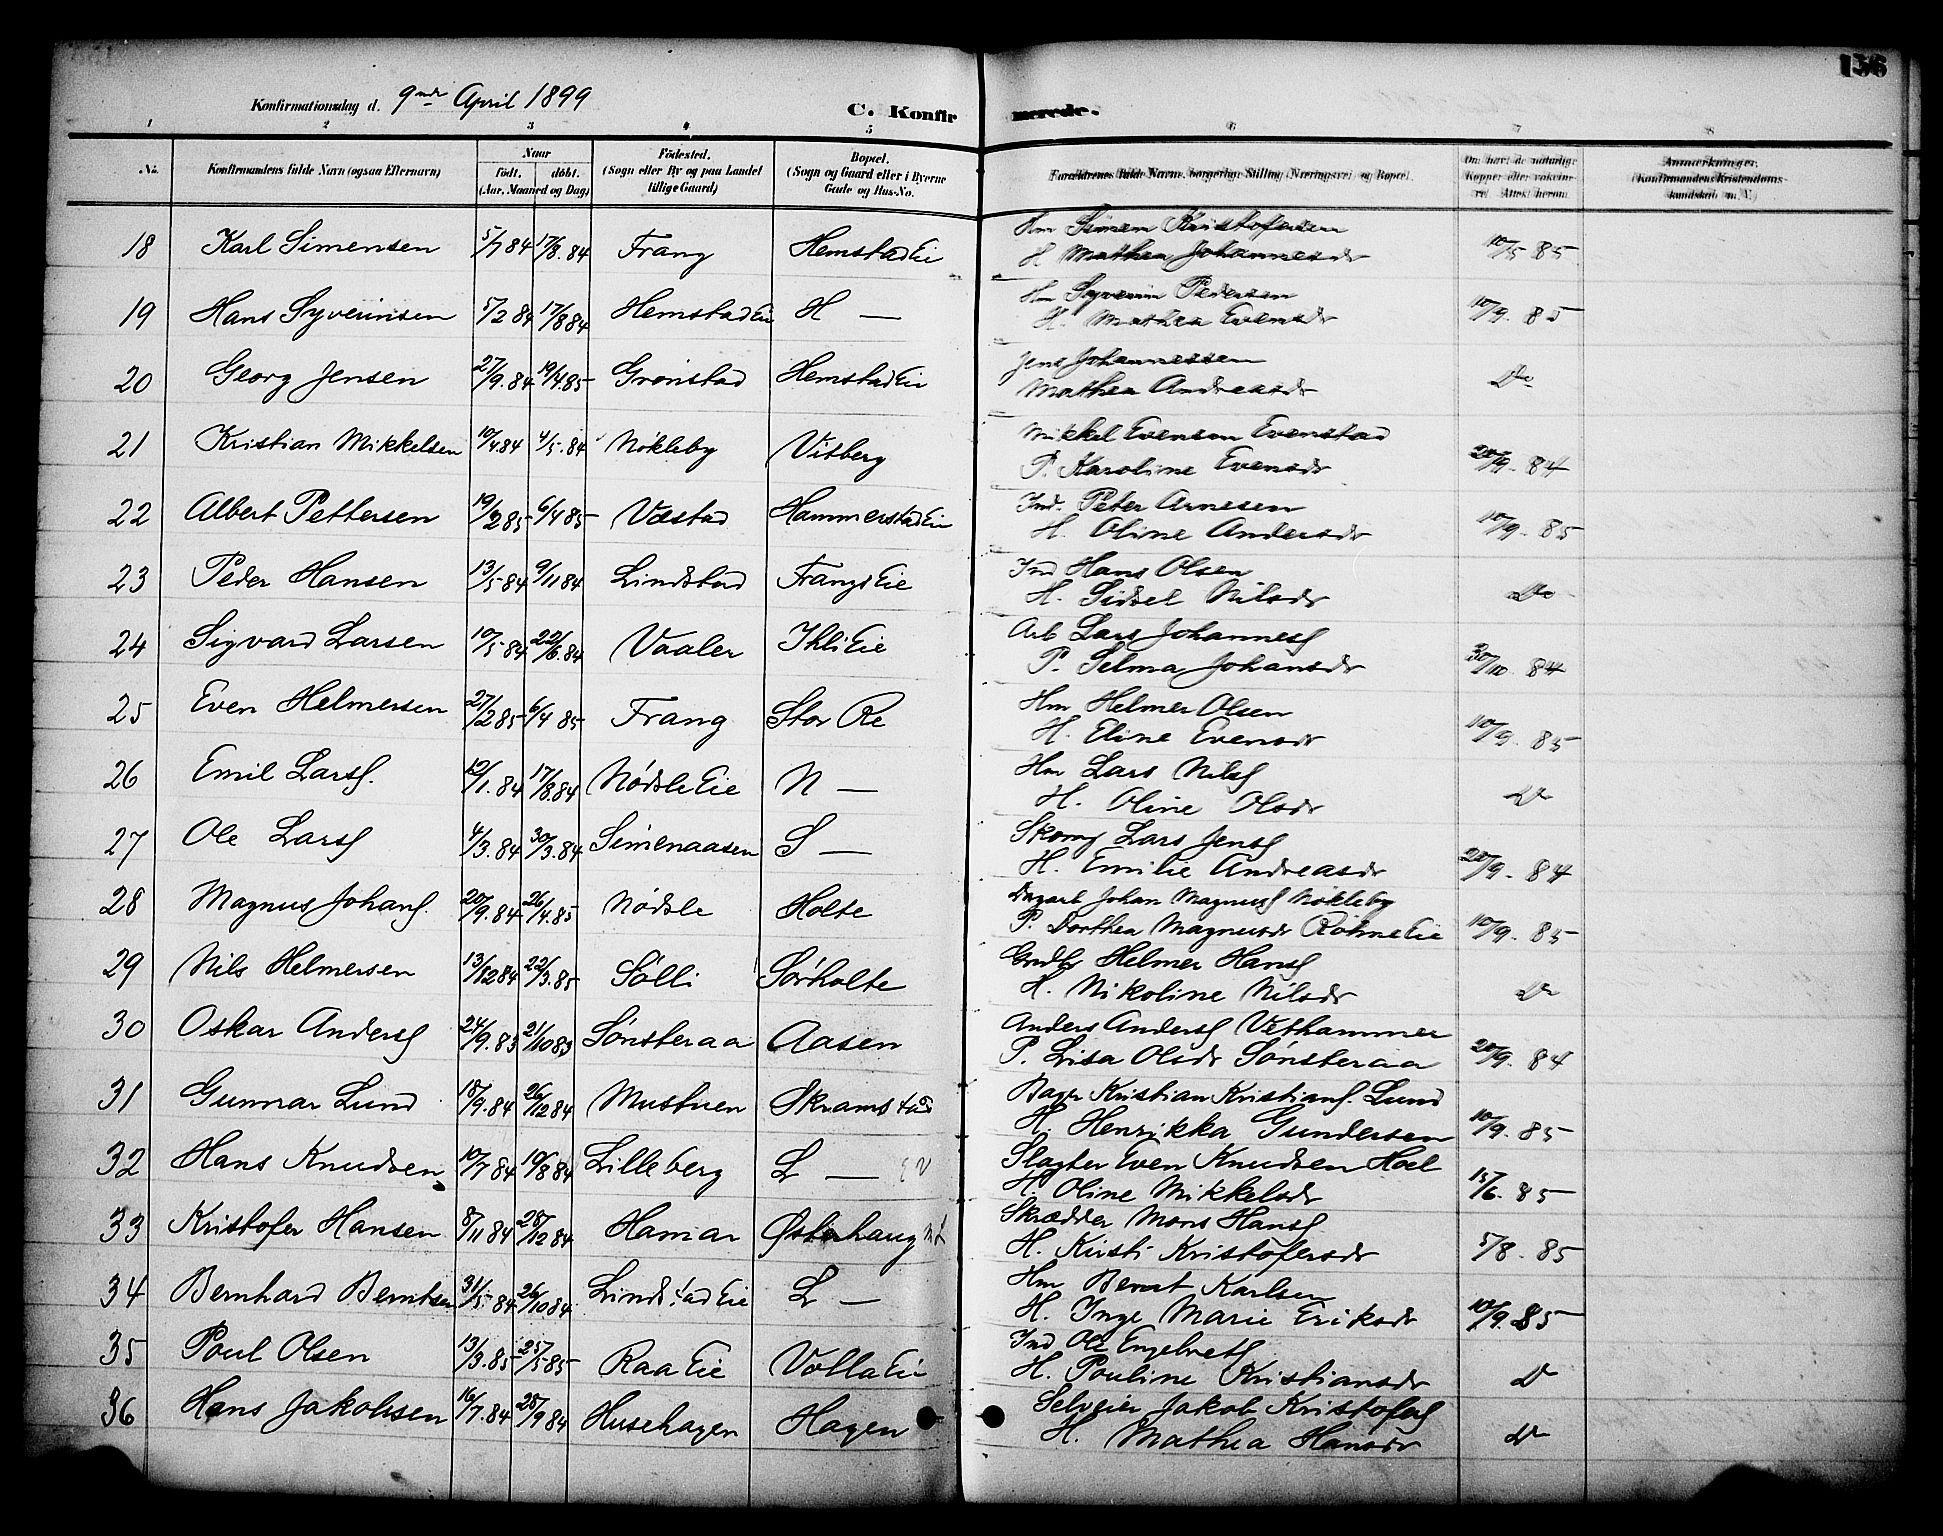 156
Konfirmationsdag d. 9nde April 1899 C. Konfirmerede.
1 2 3 4 5 6 7 8
No. Konfirmandens fulde Navn (ogsaa Efternavn) Naar födt. döbt. (Aar, Maaned og Dag) Födested. (Sogn eller By og paa Landet tillige Gaard) Bopæl. (Sogn og Gaard eller i Byerne Gade og Hus-No. Forældrenes fulde Navne, borgerlige Stilling (Næringsvei) og Bopæl. Om havt de naturlige Kopper eller vakcineret. Attest herom. Anmærkninger. (Konfirmandens Kristendomskundskab m. V.)
18 Karl Simensen 5/7 84 17/8. 84 Frang Hemstad Eie Hm Simen Kristofersen 10/5 85
H Mathea Johannesdr
19 Hans Syverinsen 5/2 84 17/8 84 Hemstad Eie H — Hm Syverin Pedersen 10/9. 85
H. Mathea Evensdr
20 Georg Jensen 27/9. 84 19/4 85 Grønstad Hemstad Eie Jens Johannessen Do
Mathea Andreasdr
21 Kristian Mikkelsen 10/4 84 4/5. 84 Nøkleby Vitberg Mikkel Evensen Evenstad 20/9. 84
P. Karoline Evensdr
22 Albert Pettersen 19/2 85 6/4 85 Væstad Hammerstad Eie Ind. Peter Arnesen 10/9. 85
H. Oline Andersdr
23 Peder Hansen 13/5 84 9/11 84 Lindstad Frangs Eie Ind Hans Olsen Do
H. Sidsel Nilsdr
24 Sigvard Larsen 10/5 84 22/6. 84 Vaaler Ihli Eie Arb Lars Johannesf 30/10. 84
P. Selma Johansdr
25 Even Helmersen 27/2 85 6/4 85 Frang Stor Re Hm Helmer Olsen 10/9. 85
H. Eline Evensdr
26 Emil Larsf. 12/1. 84 17/8. 84 Nødsle Eie N — Hm Lars Nilsf Do
H. Oline Olsdr
27 Ole Larsf 4/3. 84 30/3. 84 Simenaasen S — Skomg Lars Jensf 20/9. 84
H. Emilie Andreasdr
28 Magnus Johansf. 20/9. 84 26/4. 85 Nødsle Holte Dagarb Johan Magnusf Nøkleby 10/9. 85
P. Dorthea Magnusdr Røhne Eie
29 Nils Helmersen 13/12 84 22/3. 85 Sølli Sørholte Grdbr Helmer Hansf Do
H. Nikoline Nilsdr
30 Oskar Andersf 24/9. 83 21/10 83 Sønsteraa Aasen Anders Andersf Vethammer 20/9. 84
P. Lisa Olsdr Sønsteraa
31 Gunnar Lund 18/9. 84 26/12 84 Mustuen Skramstad Bager Kristian Kristiansf. Lund 10/9. 85
H. Henrikka Gundersen
32 Hans Knudsen 10/7 84 10/8 84 Lilleberg L — Slagter Even Knudsen Hoel 15/6. 85
H. Oline Mikkelsdr
33 Kristofer Hansen 8/11 84 28/12 84 Hamar Østerhaug Skrædder Mons Hansf 5/8. 85
H. Kirsti Kristofersdr
34 Bernhard Berntsen 31/5. 84 26/10 84 Lindstad Eie L — Hm Bernt Karlsen 10/9. 85
H. Inge Marie Eriksdr
35 Poul Olsen 13/3. 85 25/5 85 Raa Eie Volla Eie Ind Ole Engelretsf Do
H. Pouline Kristiansdr
36 Hans Jakobsen 16/7. 84 28/9 84 Husehagen Hagen Selveier Jakob Kristofersf Do
H. Mathea Hansdr